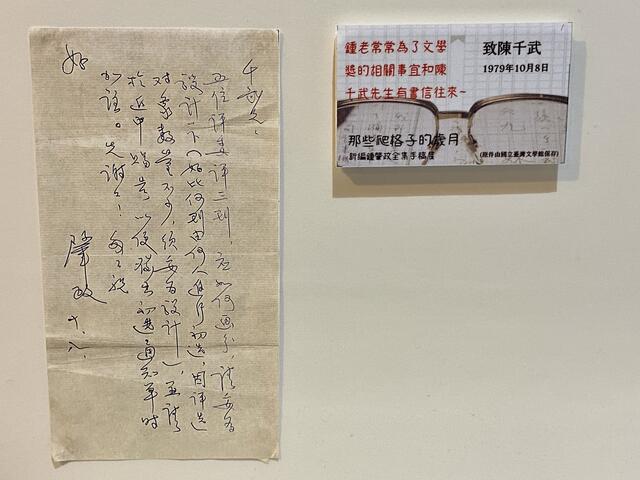 千武兄：
五位評委評三刊，应如何画分，請妥为
設計一下（好比何刊由何人進行初选，因評选
对象数量不少，須妥为設計），並請
於近中賜告，以便發出初选通知單時
先謝々！匆々祝
好
肇政 十、八、
鍾老常常為了文學
獎的相關事宜和陳
千武先生有書信往來~
致陳千武
1979年10月8日
那些爬格子的歲月
新編鍾肇政全集手稿展
(原件由國立臺灣文學館保存)